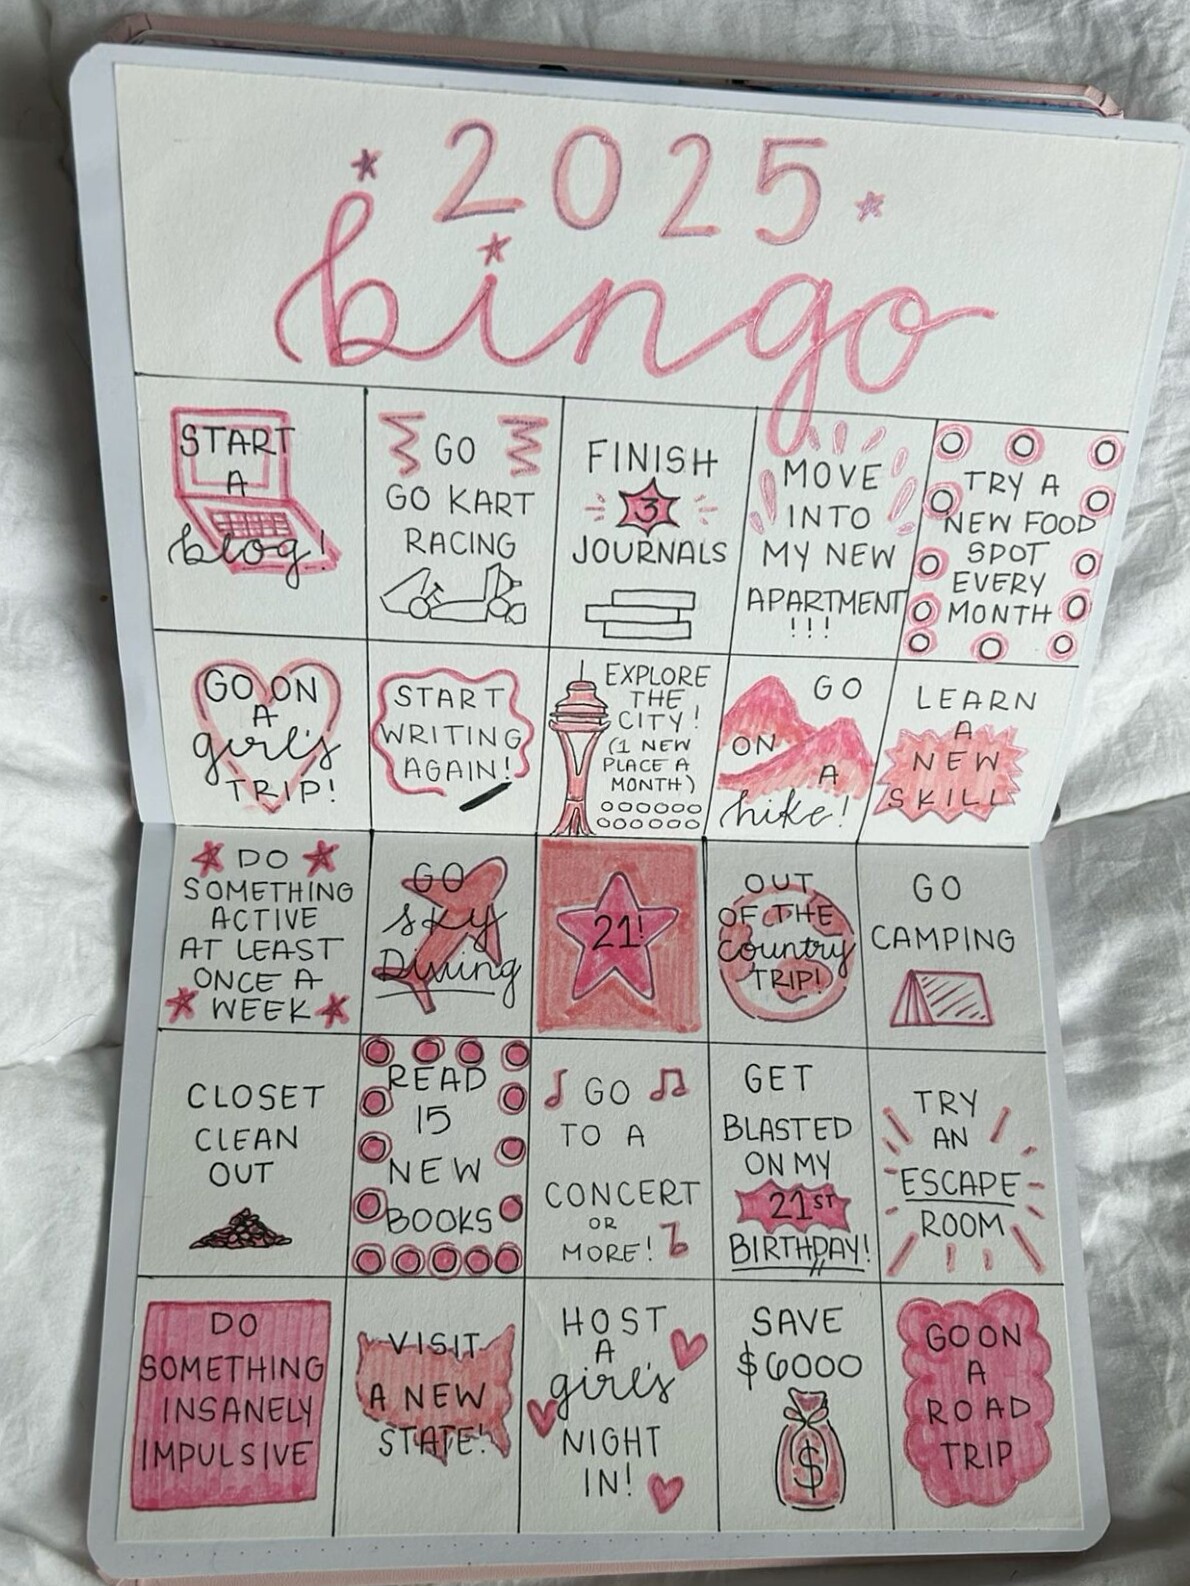 2025
bingo
START
A
blog!
GO
GO KART
RACING
FINISH
3
JOURNALS
MOVE
INTO
MY NEW
APARTMENT
!!!
TRY A
NEW FOOD
SPOT
EVERY
MONTH
GO ON
A
girl's
TRIP!
START
WRITING
AGAIN!
EXPLORE
THE
CITY!
(1 NEW
PLACE A
MONTH)
GO
ON
A
hike!
LEARN
A
NEW
SKILL
DO
SOMETHING
ACTIVE
AT LEAST
ONCE A
WEEK
GO
sky
Diving
21!
OUT
OF THE
country
TRIP!
GO
CAMPING
CLOSET
CLEAN
OUT
READ
15
NEW
BOOKS
GO
TO A
CONCERT
OR
MORE!
GET
BLASTED
ON MY
21ST
BIRTHDAY!
TRY
AN
ESCAPE
ROOM
DO
SOMETHING
INSANELY
IMPULSIVE
VISIT
A NEW
STATE!
HOST
A
girl's
NIGHT
IN!
SAVE
$6000
$
GO ON
A
ROAD
TRIP